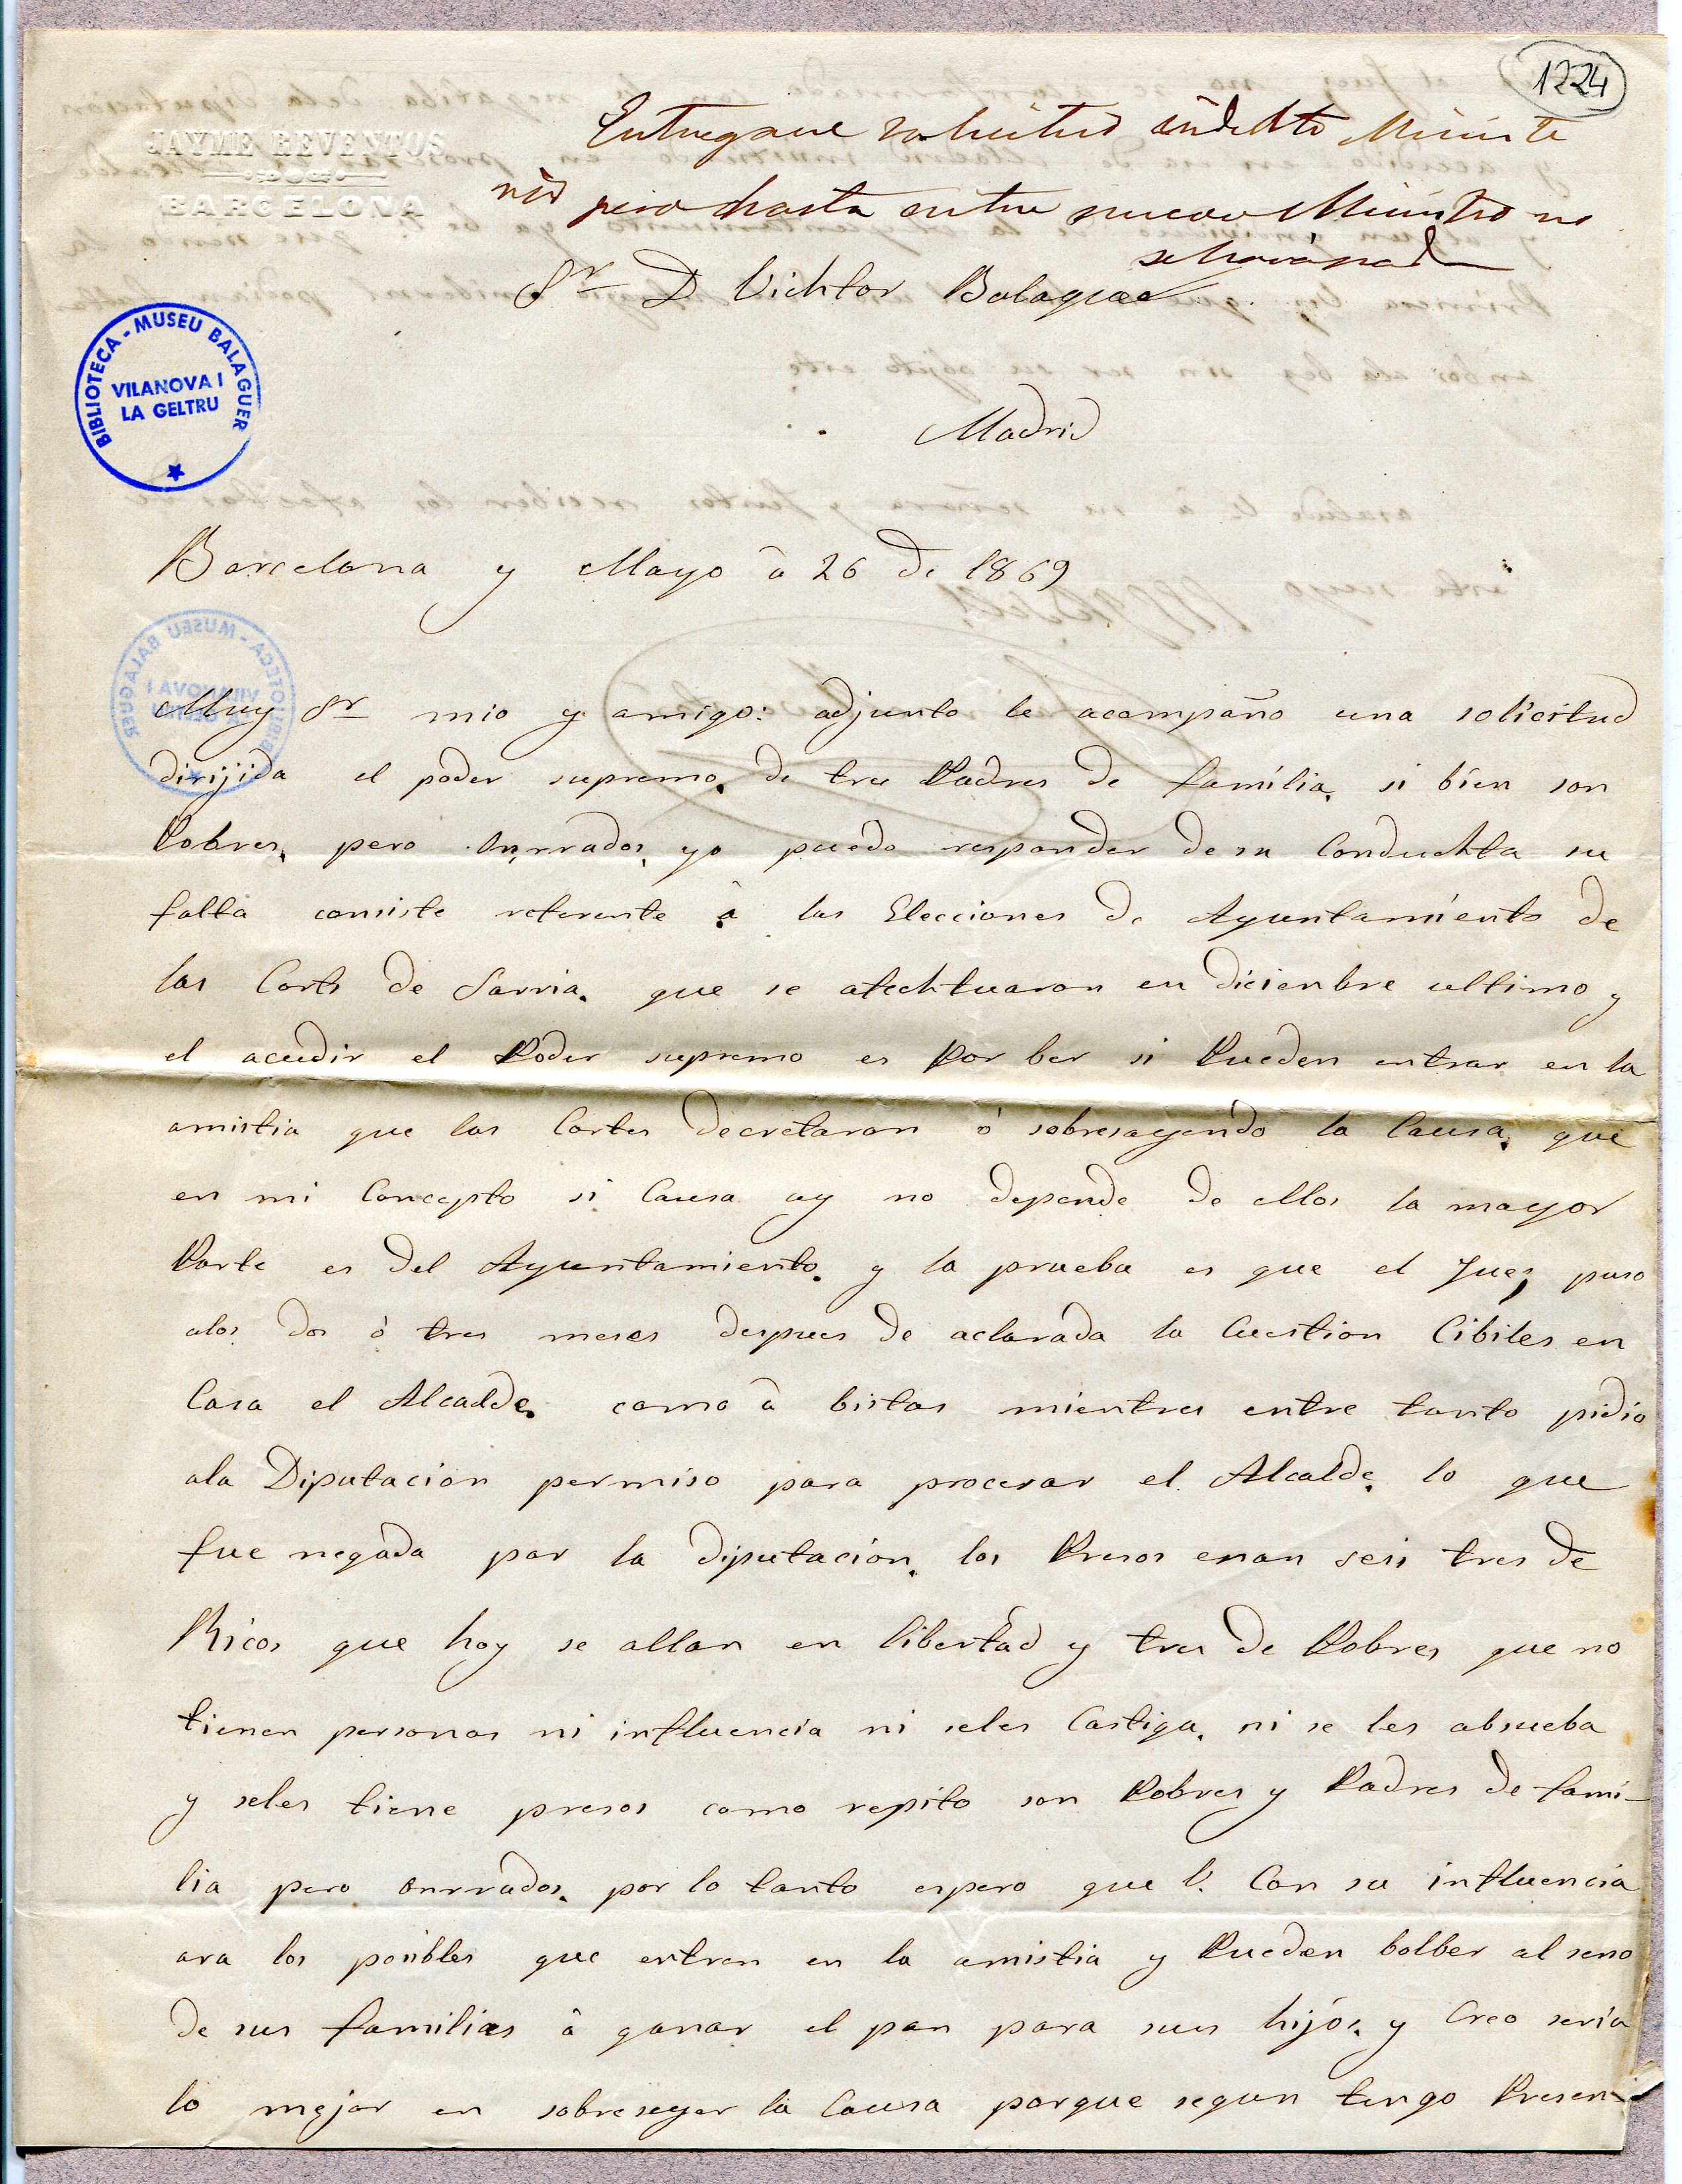 1224
JAYME REVENTOS
BARCELONA
Entregare solicitud
pero hasta entre nuevo Ministro no
se hará nada
Sr D Vichtor Balaguer
BIBLIOTECA - MUSEU BALAGUER
VILANOVA I
LA GELTRU
Madrid
Barcelona y Mayo â 26 de 1869
Muy Sr mio y amigo: adjunto le acompaño una solicitud
dirijida el poder supremo. de tres Padres de familia, si bien son
Pobres, pero onrrados, yo puedo responder de su Conduchta su
falta consiste referente â las Elecciones de Ayuntamiento de
las Corts de Sarria. que se afechtuaron en diciembre ultimo y
el acudir el Poder supremo es Por ber si Pueden entrar en la
amistia que las Cortes decretaron ó sobresayendo la Causa, que
en mi Concepto si Causa ay no depende de ellos la mayor
Parte es del Ayuntamiento. y la prueba es que el Juez, puso
alos dos ò tres meses despues de aclarada la Cuestion Cibiles en
Casa el Alcalde. como â bistas mientres entre tanto pidio
ala Diputacion permiso para procesar el Alcalde. lo que
fue negada por la diputacion. los Presos eran seis tres de
Ricos que hoy se allan en libertad y tres de Pobres que no
tienen personas ni influencia ni seles Castiga. ni se les absueba
y seles tiene presos como repito son Pobres y Padres de fami-
lia pero onrrados. por lo tanto espero que V. Con su influencia
ara los posibles que entren en la amistia y Pueden bolber al seno
de sus familias â ganar el pan para sus hijos. y Creo seria
lo mejor en sobreseyer la Causa porque segun tengo Presen-